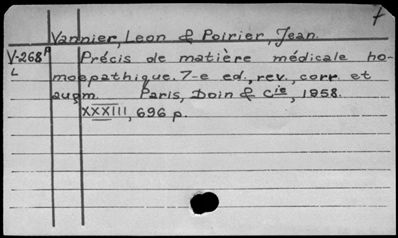 7
Vannier, Leon & Poirier, Jean
V-268A Précis de matière médicale ho-
L moepathique. 7-e ed., rev., corr. et
augm. Paris, Doin & Cie, 1958.
XXXIII, 696 p.